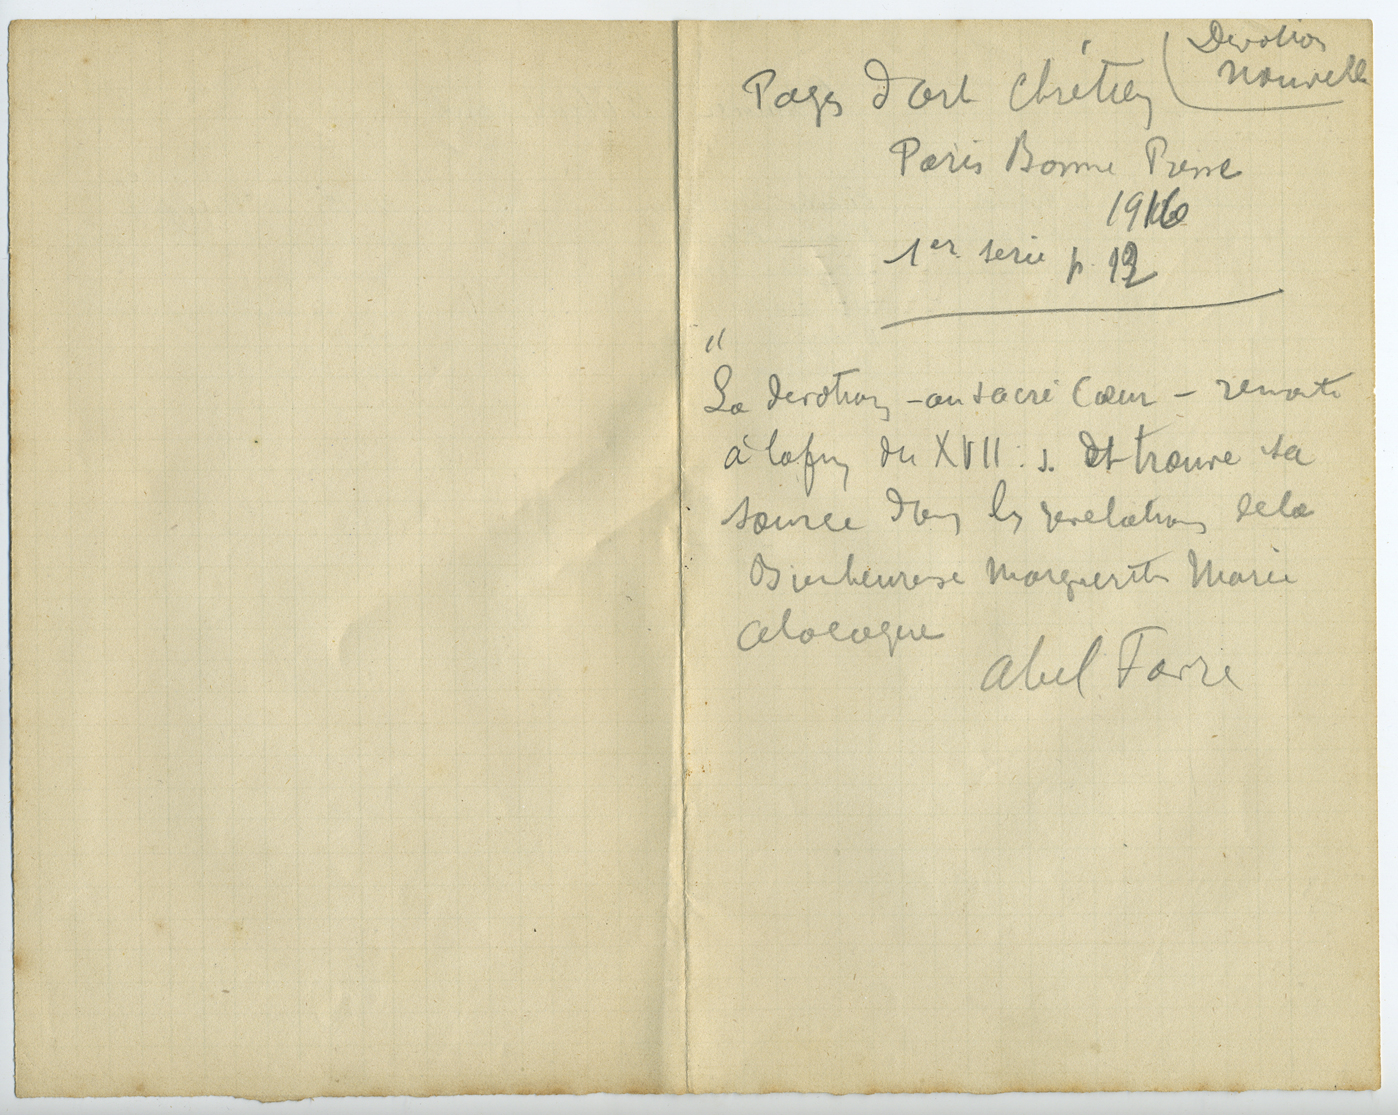 Devotion
nouvelle
Pages d'art chrétien
Paris Bonne Presse
1916
1er serie p. 12
"
La devotion - au sacré Cœur - remonte
à la fin du XVII. s. et trouve sa
source dans les revelations de la
Bienheureuse Marguerite Marie
Alacoque
Abel Favre